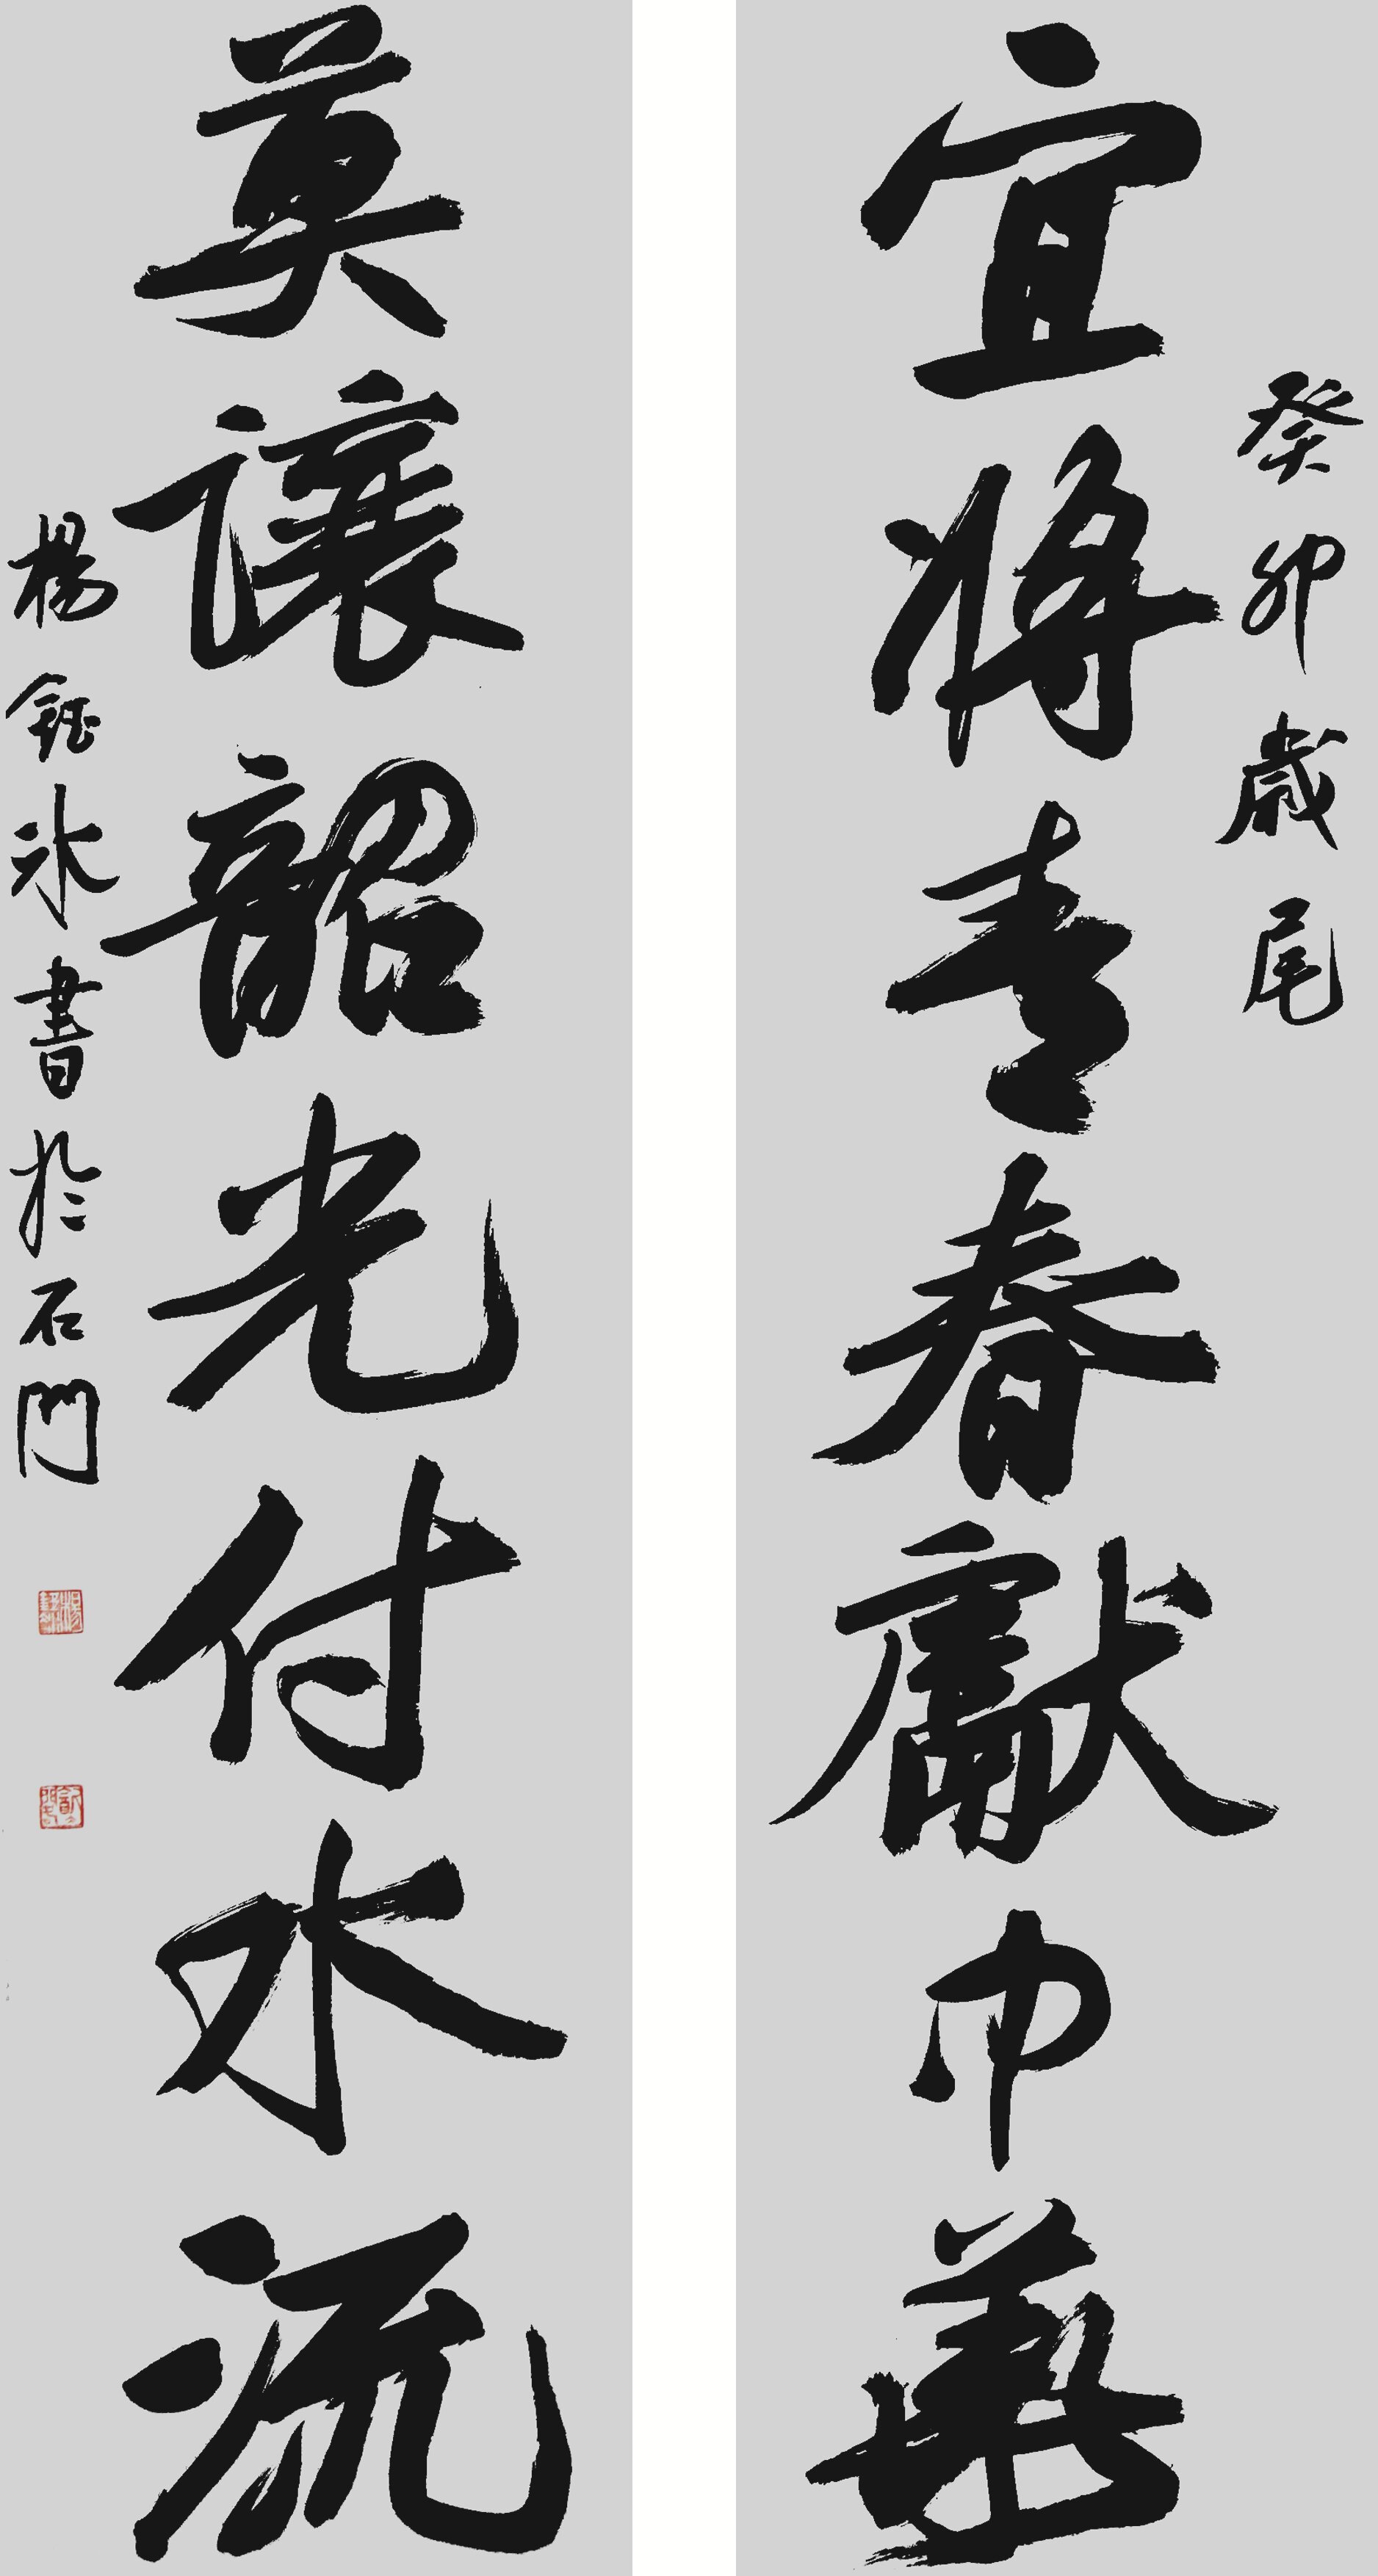 癸卯歲尾
宜將青春獻巾幗
莫讓韶光付水流
楊鈺冰書於石門